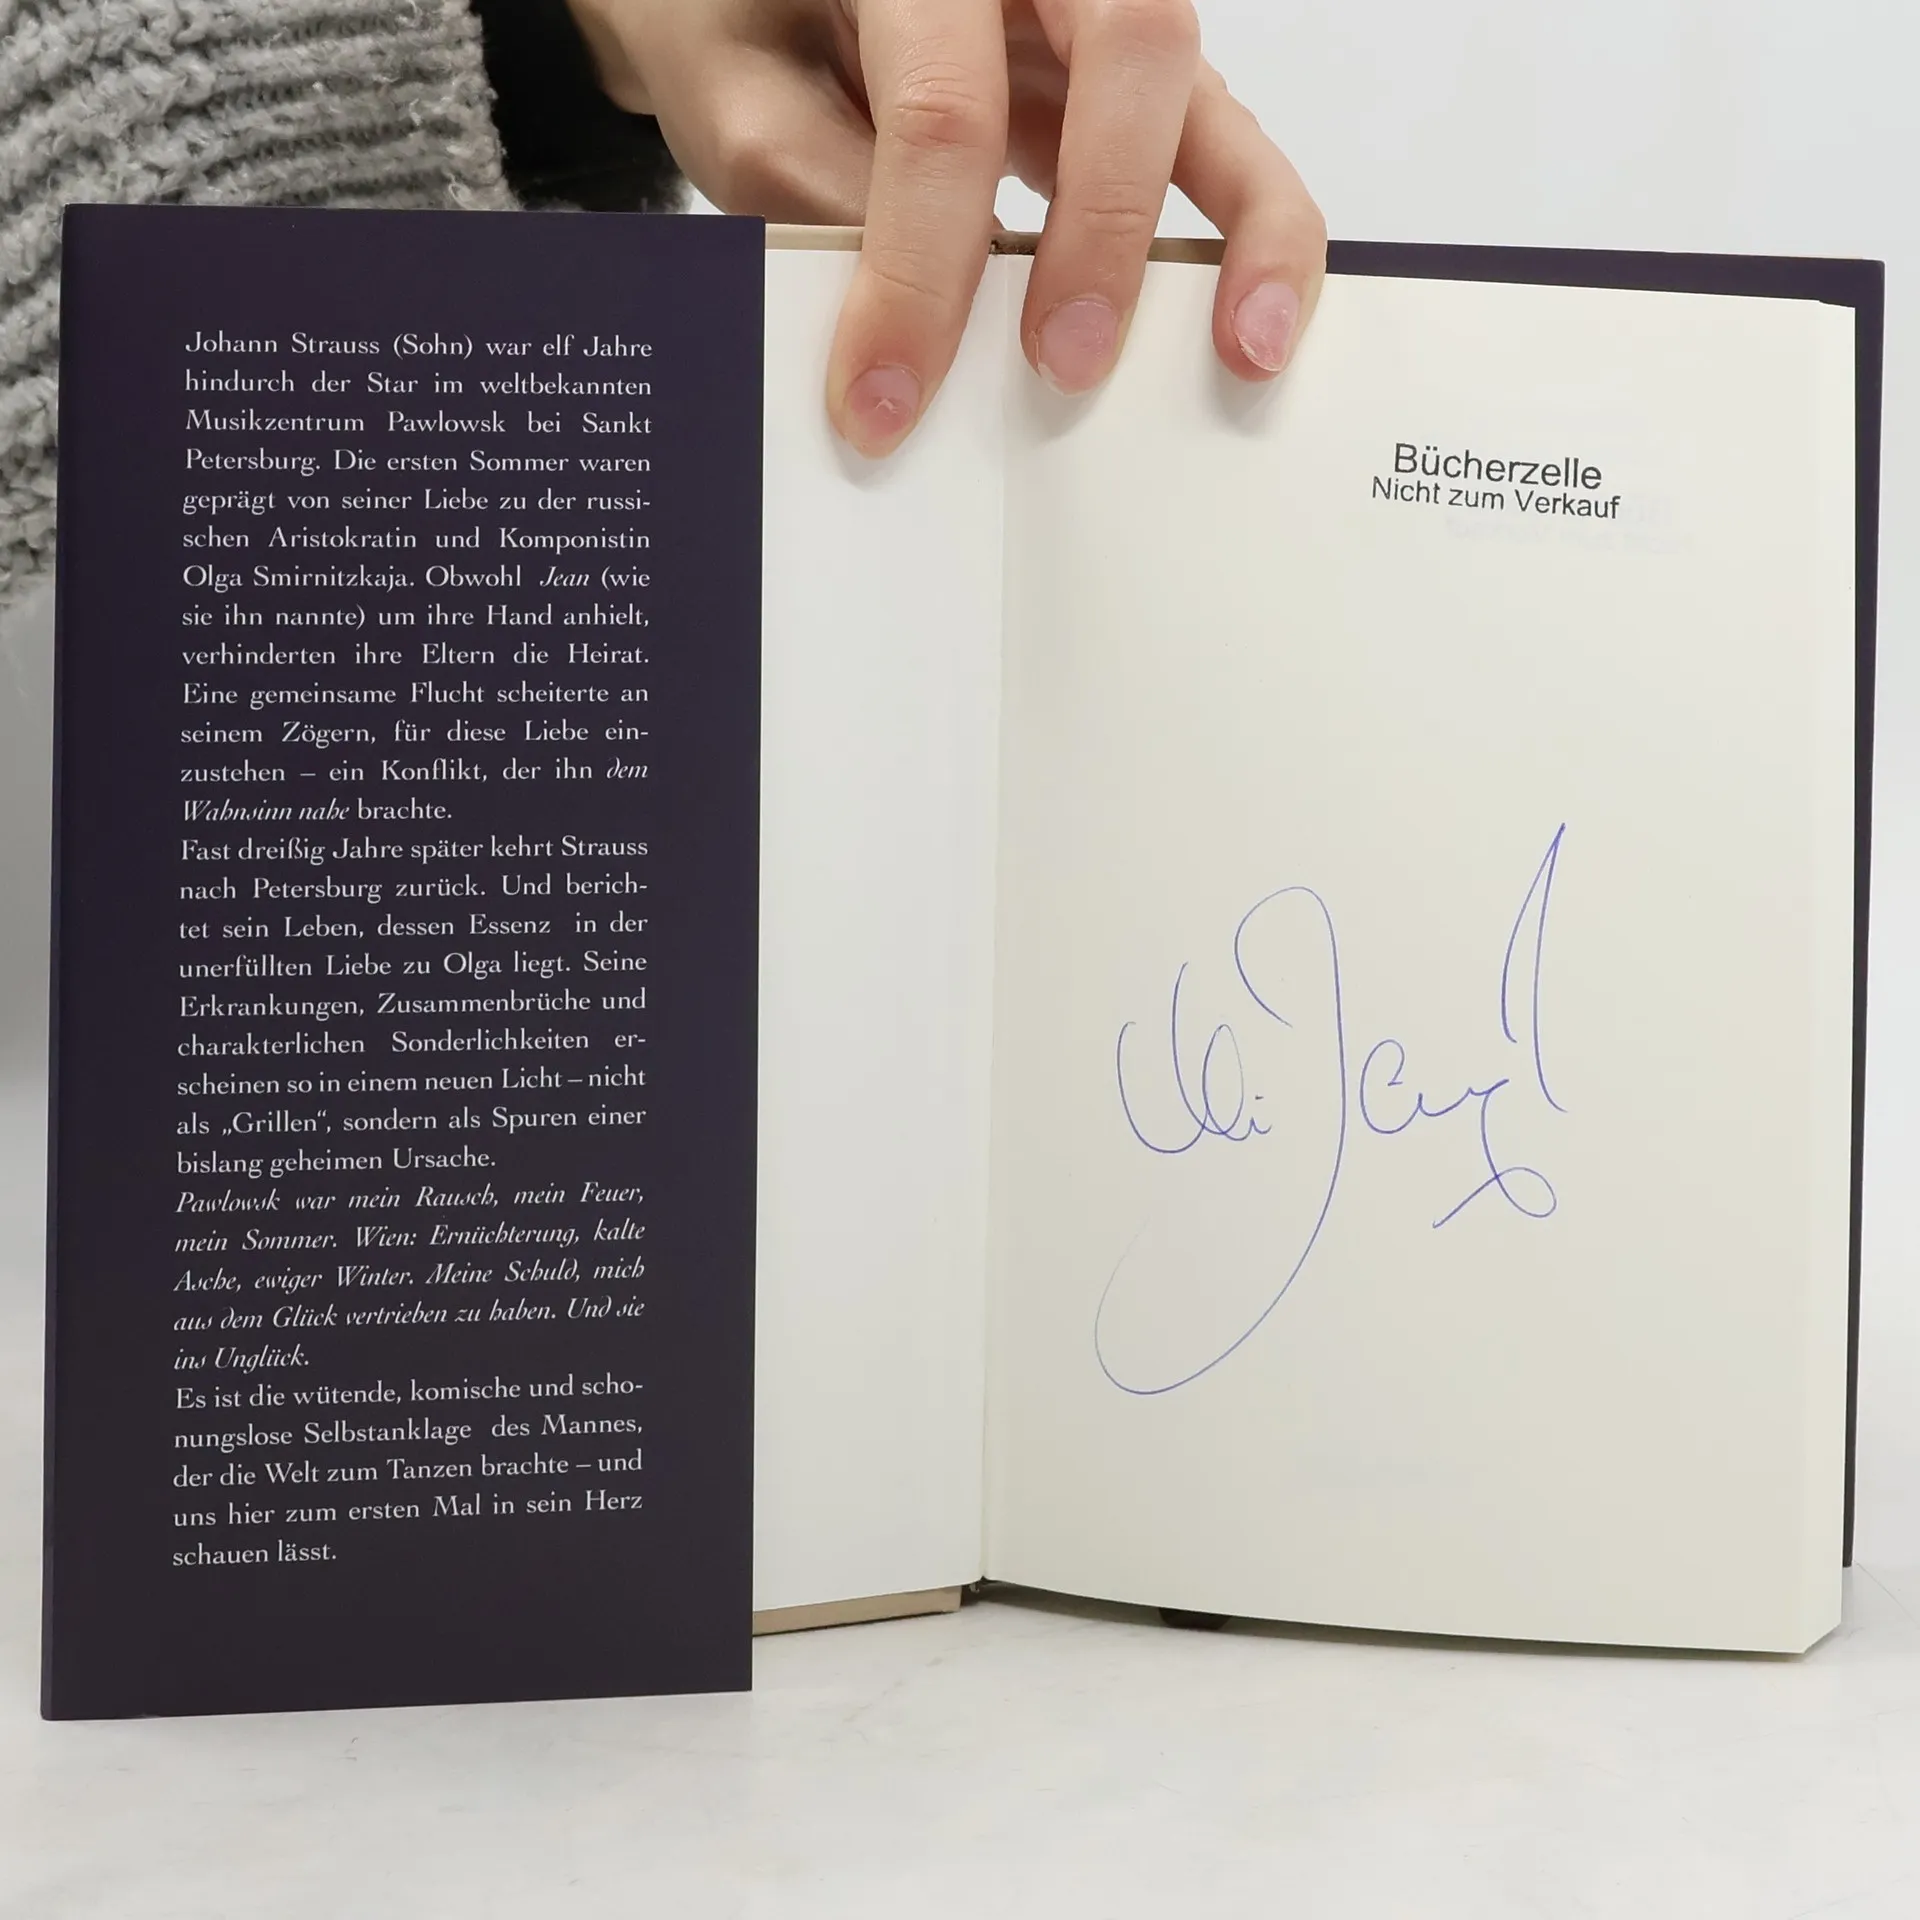 Johann Strauss (Sohn) war elf Jahre
hindurch der Star im weltbekannten
Musikzentrum Pawlowsk bei Sankt
Petersburg. Die ersten Sommer waren
geprägt von seiner Liebe zu der russi-
schen Aristokratin und Komponistin
Olga Smirnitzkaja. Obwohl Jean (wie
sie ihn nannte) um ihre Hand anhielt,
verhinderten ihre Eltern die Heirat.
Eine gemeinsame Flucht scheiterte an
seinem Zögern, für diese Liebe ein-
zustehen – ein Konflikt, der ihn dem
Wahnsinn nahe brachte.
Fast dreißig Jahre später kehrt Strauss
nach Petersburg zurück. Und berich-
tet sein Leben, dessen Essenz in der
unerfüllten Liebe zu Olga liegt. Seine
Erkrankungen, Zusammenbrüche und
charakterlichen Sonderlichkeiten er-
scheinen so in einem neuen Licht – nicht
als „Grillen“, sondern als Spuren einer
bislang geheimen Ursache.
Pawlowsk war mein Rausch, mein Feuer,
mein Sommer. Wien: Ernüchterung, kalte
Asche, ewiger Winter. Meine Schuld, mich
aus dem Glück vertrieben zu haben. Und sie
ins Unglück.
Es ist die wütende, komische und scho-
nungslose Selbstanklage des Mannes,
der die Welt zum Tanzen brachte – und
uns hier zum ersten Mal in sein Herz
schauen lässt.
Bücherzelle
Nicht zum Verkauf